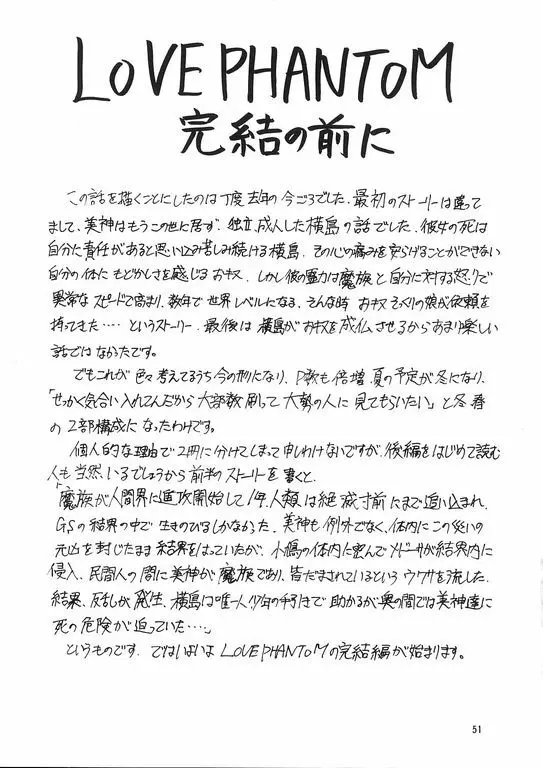 LOVE PHANTOM
完結の前に
この話を描くことにしたのは丁度去年の今ごろでした。最初のストーリーは違って
まして、美神はもうこの世に居ず、独立、成人した横島の話でした。彼女の死は
自分に責任があると思い込み苦しみ続ける横島、その心の痛みを安らげることができない
自分の体にもどかしさを感じるおキヌ、しかし彼の霊力は魔族と自分に対する怒りで
異常なスピードで高まり、数年で世界レベルになる、そんな時おキヌそっくりの娘が依頼を
持ってきた‥‥というストーリー、最後は横島がおキヌを成仏させるからあまり楽しい
話ではなかったです。
でもこれが色々考えてるうち今の形になり、P数も倍増、夏の予定が冬になり、
「せっかく気合い入れてんだから大部数刷して大勢の人に見てもらいたい」と冬春
の2部構成になったわけです。
個人的な理由で2冊に分けてしまって申しわけないですが、後編をはじめて読む
人も当然いるでしょうから前半のストーリーを書くと、
「魔族が人間界に進攻開始して1年、人類は絶滅寸前にまで追い込まれ、
GSの結界の中で生きのびるしかなかった、美神も例外でなく、体内にこの災いの
元凶を封じたまま結界をはっていたが、小鳩の体内に潜んでメドーサが結界内に
侵入、民間人の間に美神が魔族であり、皆だまされているというウワサを流した、
結果、反乱が発生、横島は唯一人少年の手引きで助かるが奥の間では美神達に
死の危険が迫っていた‥‥」
というものです、ではいよいよLOVE PHANTOMの完結編が始まります。
51